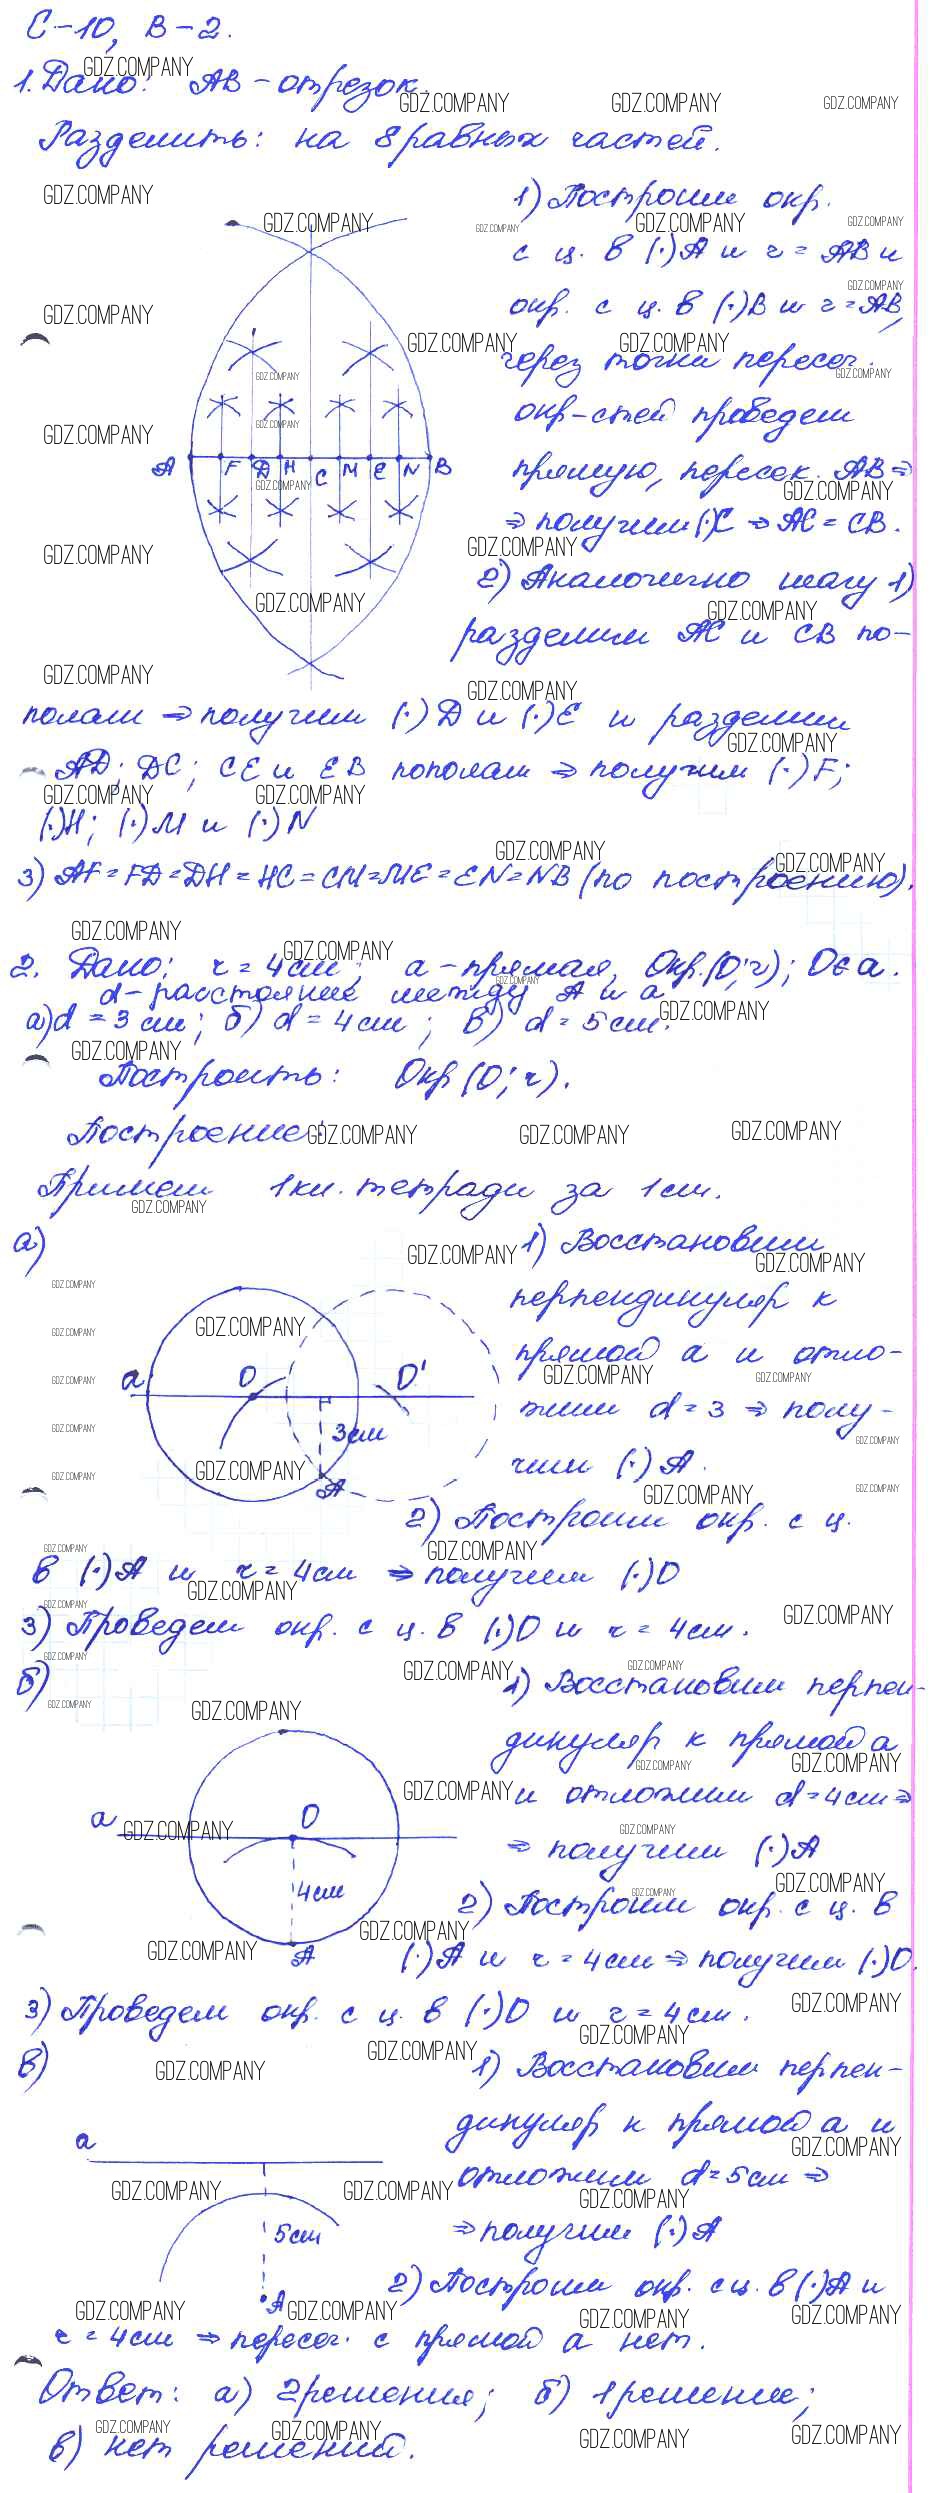 С-10, В-2.
1. Дано: АВ - отрезок.
Разделить: на 8 равных частей.
1) Построим окр.
с ц. в (·)А и r = АВ и
окр. с ц. в (·)В и r = АВ,
через точки пересеч.
окр-стей проведем
прямую, пересек. АВ ⇒
⇒ получим (·)С ⇒ АС = СВ.
A F D H C M E N B
2) Аналогично шагу 1)
разделим АС и СВ по-
полам ⇒ получим (·) D и (·) E и разделим
AD; DC; CE и EB пополам ⇒ получим (·) F;
(·)H; (·) M и (·) N
3) AF = FD = DH = HC = CM = ME = EN = NB (по построению).
2. Дано: r = 4 см; a - прямая, Окр.(O; r); O ∈ a.
d - расстояние между A и a
а) d = 3 см; б) d = 4 см; в) d = 5 см.
Построить: Окр (O; r).
Построение:
Примем 1 кл. тетради за 1 см.
а)
1) Восстановим
перпендикуляр к
прямой a и отло-
жим d = 3 ⇒ полу-
чим (·) A.
a O O' 3 см A
2) Построим окр. с ц.
в (·) A и r = 4 см ⇒ получим (·) O
3) Проведем окр. с ц. в (·) O и r = 4 см.
б)
1) Восстановим перпен-
дикуляр к прямой a
и отложим d = 4 см ⇒
⇒ получим (·) A
a O 4 см A
2) Построим окр. с ц. в
(·) A и r = 4 см ⇒ получим (·) O.
3) Проведем окр. с ц. в (·) O и r = 4 см.
в)
1) Восстановим перпен-
дикуляр к прямой a и
отложим d = 5 см ⇒
⇒ получим (·) A
a 5 см A
2) Построим окр. с ц. в (·) A и
r = 4 см ⇒ пересеч. с прямой a нет.
Ответ: а) 2 решения; б) 1 решение;
в) нет решений.
GDZ.COMPANY